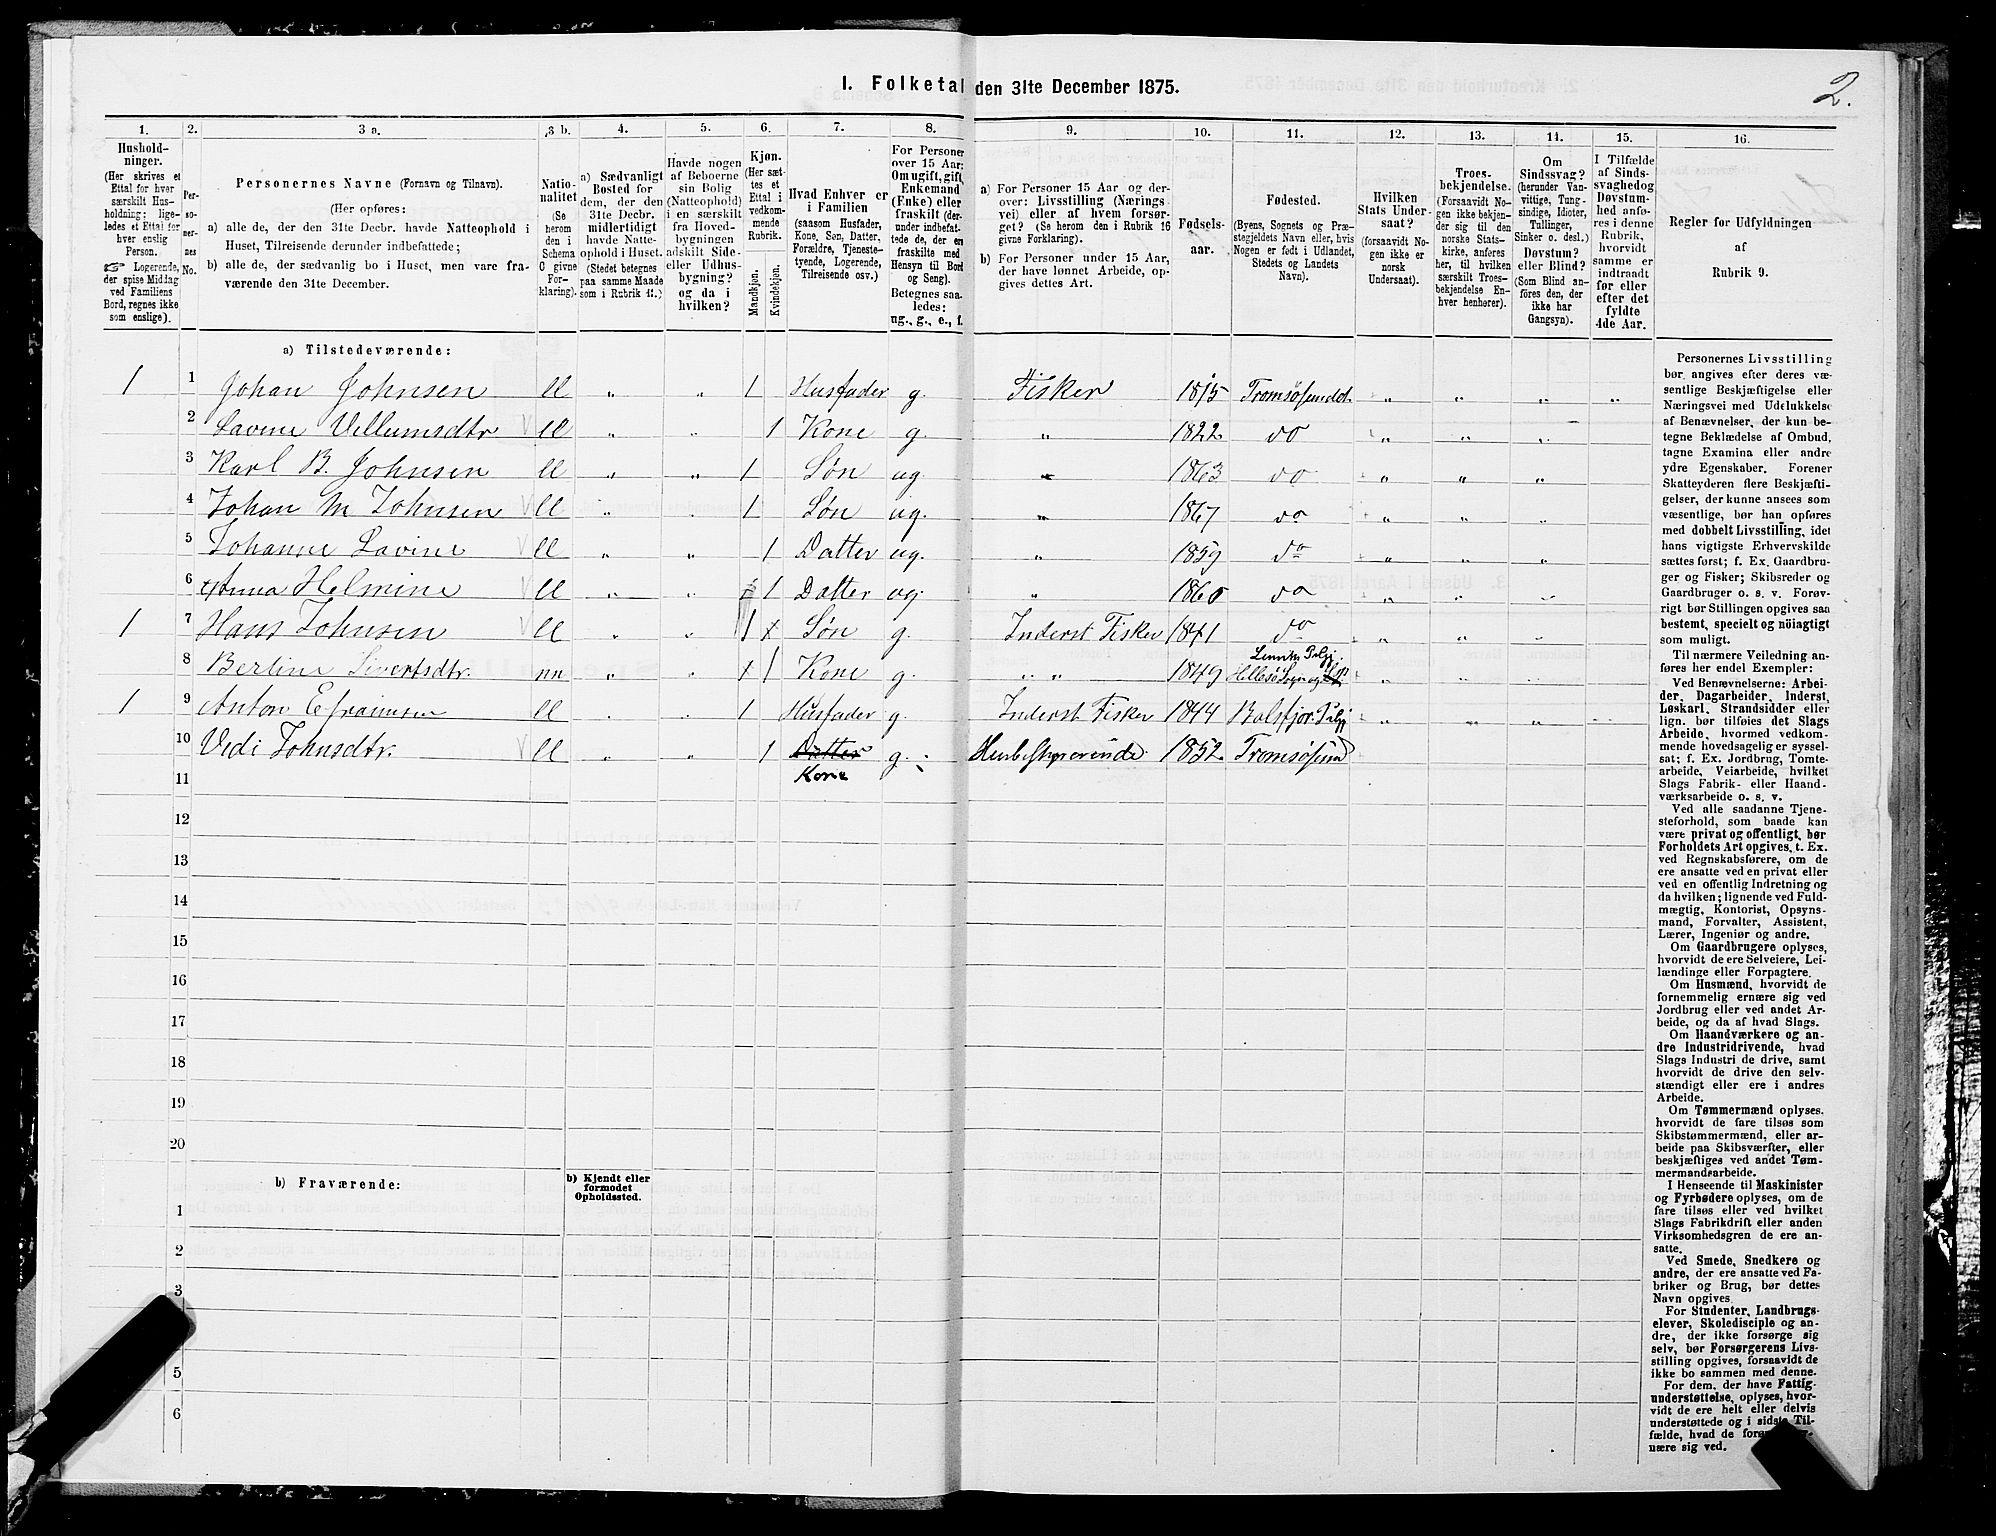 I. Folketal den 31te December 1875.
2.
1. 2. 3 a. 3 b. 4. 5. 6. 7. 8. 9. 10. 11. 12. 13. 14. 15. 16.
Hushold-
ninger.
(Her skrives et
Ettal for hver
særskilt Hus-
holdning; lige-
ledes et Ettal for
hver enslig
Person.
☞ Logerende,
der spise Middag
ved Familiens
Bord, regnes ikke
som enslige).
Per-
so-
ner-
nes
No.
Personernes Navne (Fornavn og Tilnavn).
(Her opføres:
a) alle de, der den 31te Decbr. havde Natteophold i
Huset, Tilreisende derunder indbefattede;
b) alle de, der sædvanlig bo i Huset, men vare fra-
værende den 31te December.
Natio-
nalitet
(Se
herom
den i
Schema
C givne
For-
klaring).
a) Sædvanligt
Bosted for
dem, der den
31te Decbr.
midlertidigt
havde Natte-
ophold i Huset.
(Stedet betegnes
paa samme Maade
som i Rubrik 11.)
Havde nogen
af Beboerne
sin Bolig
(Natteophold)
i en særskilt
fra Hoved-
bygningen
adskilt Side-
eller Udhus-
bygning?
og da i
hvilken?
Kjøn.
(Her sæt-
tes et
Ettal i
vedkom-
mende
Rubrik.
Mandkjøn.
Kvindekjøn.
Hvad Enhver er
i Familien
(saasom Husfader,
Kone, Søn, Datter,
Forældre, Tjeneste-
tyende, Logerende,
Tilreisende osv.)
For Personer
over 15 Aar:
Om ugift, gift,
Enkemand
(Enke) eller
fraskilt (der-
under indbefat-
tede de, der ere
fraskilte med
Hensyn til Bord
og Seng).
Betegnes saa-
ledes:
ug., g., e., f.
a) For Personer 15 Aar og der-
over: Livsstilling (Nærings-
vei) eller af hvem forsør-
get? (Se herom den i Rubrik 16
givne Forklaring).
b) For Personer under 15 Aar,
der have lønnet Arbeide, op-
gives dettes Art.
Fødsels-
aar.
Fødested.
(Byens, Sognets og Præ-
stegjeldets Navn eller, hvis
Nogen er født i Udlandet,
Stedets og Landets
Navn).
Hvilken
Stats Under-
saat?
(forsaavidt No-
gen ikke er
norsk
Undersaat).
Troes-
bekjendelse.
(Forsaavidt No-
gen ikke bekjen-
der sig til den
norske Stats-
kirke, anføres
her, til hvilken
særskilt Troes-
bekjendelse En-
hver henhører).
Om
Sindssvag?
(herunder Van-
vittige, Tung-
sindige, Idioter,
Tullinger,
Sinker o. desl.)
Døvstum?
eller Blind?
(Som Blind an-
føres den, der
ikke har
Gangsyn).
I Tilfælde
af Sinds-
svaghed og
Døvstum-
hed anfø-
res i denne
Rubrik,
hvorvidt
samme er
indtraadt
før eller
efter det
fyldte
4de Aar.
Regler for Udfyldningen
af
Rubrik 9.
a) Tilstedeværende:
1 1 Johan Johnsen ll „ „ 1 Husfader g. Fisker 1815 Tromsøsundet „ „ „ „
2 Lavine Villumsdtr ll „ „ 1 Kone g. „ 1822 do „ „ „
3 Karl B. Johnsen ll „ „ 1 Søn ug „ 1863 do „ „ „
4 Johan M Johnsen ll „ „ 1 Søn ug. „ 1867 do „ „ „
5 Johanne Lavine ll „ „ 1 Datter ug. „ 1859 do „ „ „
6 Anna Helmine ll „ „ 1 Datter ug. „ 1860 do „ „ „
1 7 Hans Johnsen ll „ „ 1 x Søn g. Inderst Fisker 1841 do „ „ „
8 Berline Sivertsdtr. nn „ „ x 1 Kone g. „ „ 1849 Lenviks Prlgj. Hillesø Sogn og „ „ „
1 9 Anton Efraimsen ll „ „ 1 Husfader g. Inderst Fisker 1844 Balsfjor. Prlgj „ „ „
10 Vedi Johnsdtr. ll „ „ 1 Datter g. Husbestyrerende 1852 Tromsøsund
Kone
11
12
13
14
15
16
17
18
19
20
b) Fraværende:
b) Kjendt eller
formodet
Opholdssted.
1
2
3
5
6
Personernes Livsstilling
bør angives efter deres væ-
sentlige Beskjæftigelse eller
Næringsvei med Udelukkelse
af Benævnelser, der kun be-
tegne Beklædelse af Ombud,
tagne Examina eller andre
ydre Egenskaber. Forener
Skatteyderen flere Beskjæfti-
gelser, der kunne ansees som
væsentlige, bør han opføres
med dobbelt Livsstilling, idet
hans vigtigste Erhvervskilde
sættes først; f. Ex. Gaardbru-
ger og Fisker; Skibsreder og
Gaardbruger o. s. v. Forøv-
rigt bør Stillingen opgives saa
bestemt, specielt og nöiagtigt
som muligt.
Til nærmere Veiledning an-
føres her endel Exempler:
Ved Benævnelserne: Arbei-
der, Dagarbeider, Inderst,
Løskarl, Strandsidder eller
lign. bør tilføies det Slags
Arbeide, hvormed vedkom-
mende hovedsagelig er syssel-
sat; f. Ex. Jordbrug, Tomte-
arbeide, Veiarbeide, hvilket
Slags Fabrik- eller Haand-
værksarbeide o. s. v.
Ved alle saadanne Tjene-
steforhold, som baade kan
være privat og offentligt, bør
Forholdets Art opgives, t. Ex.
ved Regnskabsførere, om de
ere ansatte ved en privat eller
ved en offentlig Indretning og
da hvilken; lignende ved Fuld-
mægtig, Kontorist, Opsyns-
mand, Forvalter, Assistent,
Lærer, Ingeniør og andre.
Om Gaardbrugere oplyses,
hvorvidt de ere Selveiere, Lei-
lændinge eller Forpagtere.
Om Husmænd, hvorvidt de
fornemmelig ernære sig ved
Jordbrug eller ved andet Ar-
beide, og da af hvad Slags.
Om Haandværkere og an-
dre Industridrivende, hvad
Slags Industri de drive, samt
hvorvidt de drive den selv-
stændigt eller ere i andres
Arbeide.
Om Tømmermænd oplyses.
hvorvidt de fare tilsøs som
Skibstømmermænd, eller ar-
beide paa Skibsværfter, eller
beskjæftiges ved andet Tøm-
mermandsarbeide.
I Henseende til Maskinister
og Fyrbødere oplyses, om de
fare tilsøs eller ved hvilket
Slags Fabrikdrift eller anden
Virksomhedsgren de ere an-
satte.
Ved Smede, Snedkere og
andre, der ere ansatte ved Fa-
briker og Brug, bør dettes
Navn opgives.
For Studenter, Landbrugs-
elever, Skoledisciple og an-
dre, der ikke forsørge sig
selv, bør Forsørgerens Livs-
stilling opgives, forsaavidt de
ikke bo sammen med denne.
For dem, der have Fattig-
understøttelse, oplyses, hvor-
vidt de ere helt eller delvis
understøttede og i sidste Til-
fælde, hvad de
nære sig ved.